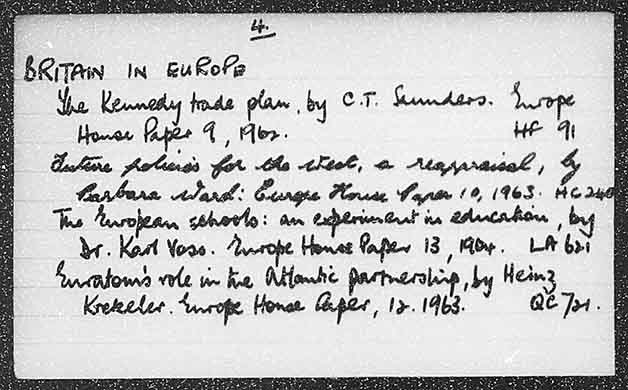 4.
BRITAIN IN EUROPE
The Kennedy trade plan, by C.T. Saunders. Europe
House Paper 9, 1962. HF 91
Future policies for the West, a reappraisal, by
Barbara Ward: Europe House Paper 10, 1963. HC 240
The European schools: an experiment in education, by
Dr. Karl Voss. Europe House Paper 13, 1964. LA 621
Euratom's role in the Atlantic partnership, by Heinz
Krekeler. Europe House Paper, 12. 1963. QC 721.